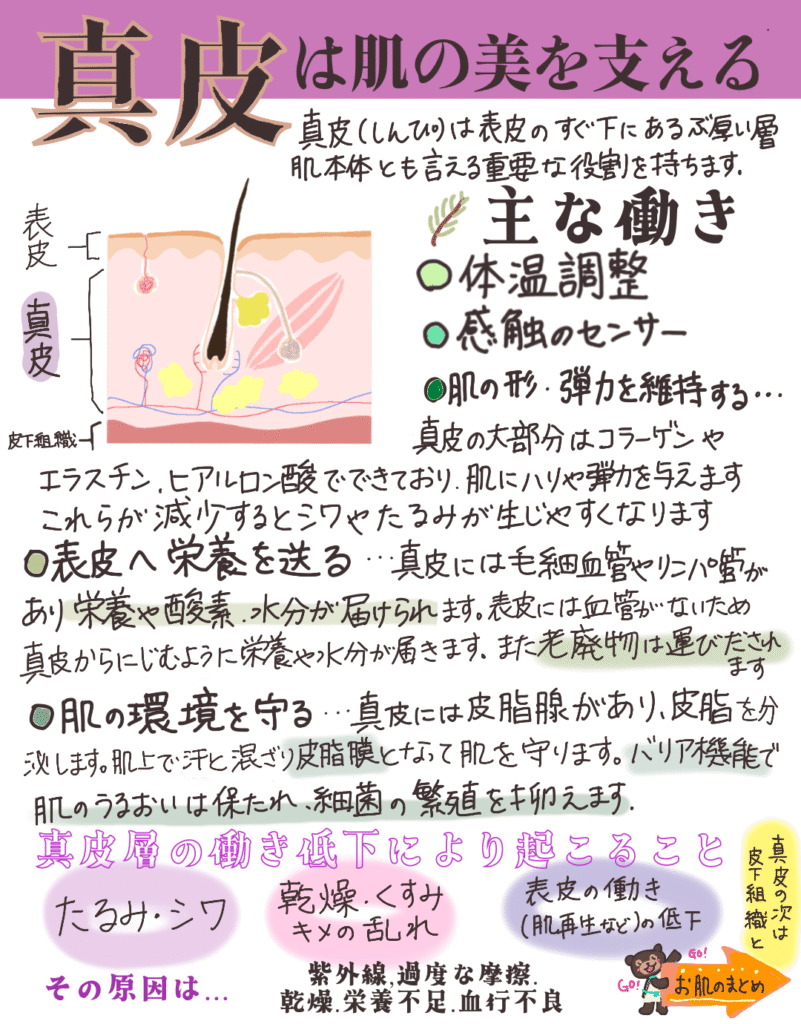 真皮は肌の美を支える
真皮(しんぴ)は表皮のすぐ下にあるぶ厚い層
肌本体とも言える重要な役割を持ちます.
表皮
真皮
皮下組織
主な働き
体温調整
感触のセンサー
肌の形・弾力を維持する…
真皮の大部分はコラーゲンや
エラスチン、ヒアルロン酸でできており、肌にハリや弾力を与えます
これらが減少するとシワやたるみが生じやすくなります
表皮へ栄養を送る…真皮には毛細血管やリンパ管が
あり栄養や酸素、水分が届けられます。表皮には血管がないため
真皮からにじむように栄養や水分が届きます、また老廃物は運びだされ
ます
肌の環境を守る…真皮には皮脂腺があり、皮脂を分
泌します。肌上で汗と混ざり皮脂膜となって肌を守ります。バリア機能で
肌のうるおいは保たれ、細菌の繁殖を抑えます.
真皮層の働き低下により起こること
たるみ・シワ
乾燥・くすみ
キメの乱れ
表皮の働き
(肌再生など)の低下
真皮の次は
皮下組織と
その原因は...
紫外線,過度な摩擦.
乾燥.栄養不足.血行不良
GO!
GO!
お肌のまとめ